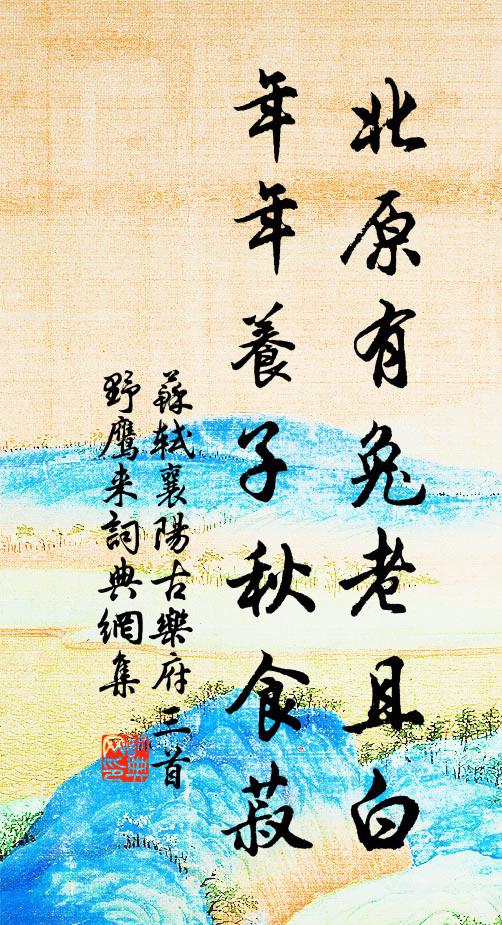 北原有兔老且白
年年養子秋食菽
蘇軾襄陽古樂府三首
野鷹来詞典網集